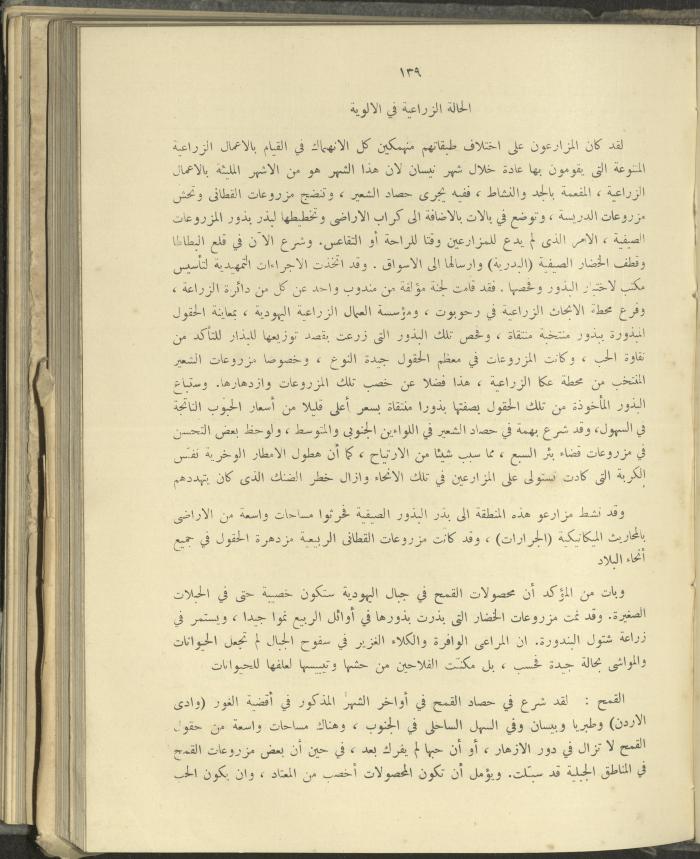 ١٣٩
الحالة الزراعية في الالوية
لقد كان المزارعون على اختلاف طبقاتهم منهمكين كل الانهماك في القيام بالاعمال الزراعية
المتنوعة التى يقومون بها عادة خلال شهر نيسان لان هذا الشهر هو من الاشهر المليئة بالاعمال
الزراعية ، المفعمة بالجد والنشاط ، ففيه يجرى حصاد الشعير ، وتنضج مزروعات القطانى وتحش
مزروعات الدريسة ، وتوضع في بالات بالاضافة الى كراب الاراضى وتخطيطها لبذر بذور المزروعات
الصيفية ، الامر الذى لم يدع للمزارعين وقتا للراحة أو التقاعس. وشرع الآن في قلع البطاطا
وقطف الخضار الصيفية (البدرية) وارسالها الى الاسواق . وقد اتخذت الاجراءات التمهيدية لتأسيس
مكتب لاختبار البذور وفحصها . فقد قامت لجنة مؤلفة من مندوب واحد عن كل من دائرة الزراعة ،
وفرع محطة الابحاث الزراعية في رحوبوت ، ومؤسسة العمال الزراعية اليهودية ، بمعاينة الحقول
المبذورة ببذور منتخبة منتقاة ، وفحص تلك البذور التى زرعت بقصد توزيعها للبذار للتأكد من
نقاوة الحب ، وكانت المزروعات في معظم الحقول جيدة النوع ، وخصوصا مزروعات الشعير
المنتخب من محطة عكا الزراعية ، هذا فضلا عن خصب تلك المزروعات وازدهارها. وستباع
البذور المأخوذة من تلك الحقول بصفتها بذورا منتقاة بسعر أعلى قليلا من أسعار الحبوب الناتجة
في السهول، وقد شرع بهمة في حصاد الشعير في اللواءين الجنوبى والمتوسط ، ولوحظ بعض التحسن
في مزروعات قضاء بئر السبع ، مما سبب شيئا من الارتياح ، كما أن هطول الامطار الوخرية نفس
الكربة التى كادت تستولى على المزارعين في تلك الانحاء وازال خطر الضنك الذى كان يتهددهم
وقد نشط مزارعو هذه المنطقة الى بذر البذور الصيفية فحرثوا مساحات واسعة من الاراضى
بالمحاريث الميكانيكية (الجرارات) ، وقد كانت مزروعات القطانى الربيعية مزدهرة الحقول في جميع
أنحاء البلاد
وبات من المؤكد أن محصولات القمح في جبال اليهودية ستكون خصبية حتى في الحبلات
الصغيرة. وقد نمت مزروعات الخضار التى بذرت بذورها في أوائل الربيع نموا جيدا ، ويستمر في
زراعة شتول البندورة. ان المراعى الوافرة والكلاء الغزير في سفوح الجبال لم تجعل الحيوانات
والمواشى بحالة جيدة فحسب ، بل مكنت الفلاحين من حشها وتيبيسها لعلفها للحيوانات
القمح : لقد شرع في حصاد القمح في أواخر الشهر المذكور في أقضية الغور (وادى
الاردن) وطبريا وبيسان وفي السهل الساحلى في الجنوب ، وهناك مساحات واسعة من حقول
القمح لا تزال في دور الازهار ، أو أن حبها لم يفرك بعد ، في حين أن بعض مزروعات القمح
في المناطق الجبلية قد سبلت. ويؤمل أن تكون المحصولات أخصب من المعتاد ، وان يكون الحب